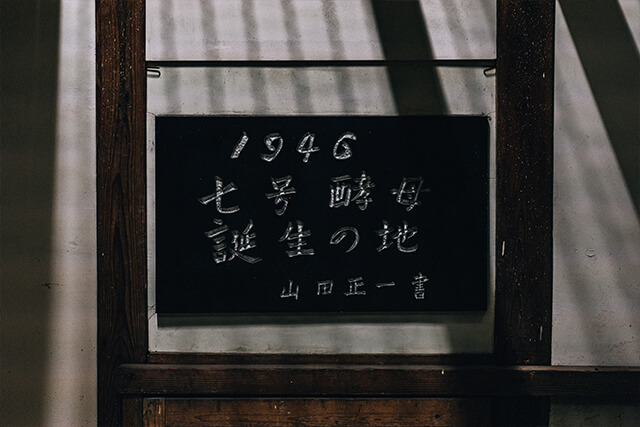 1946
七号酵母
誕生の地
山田正一書